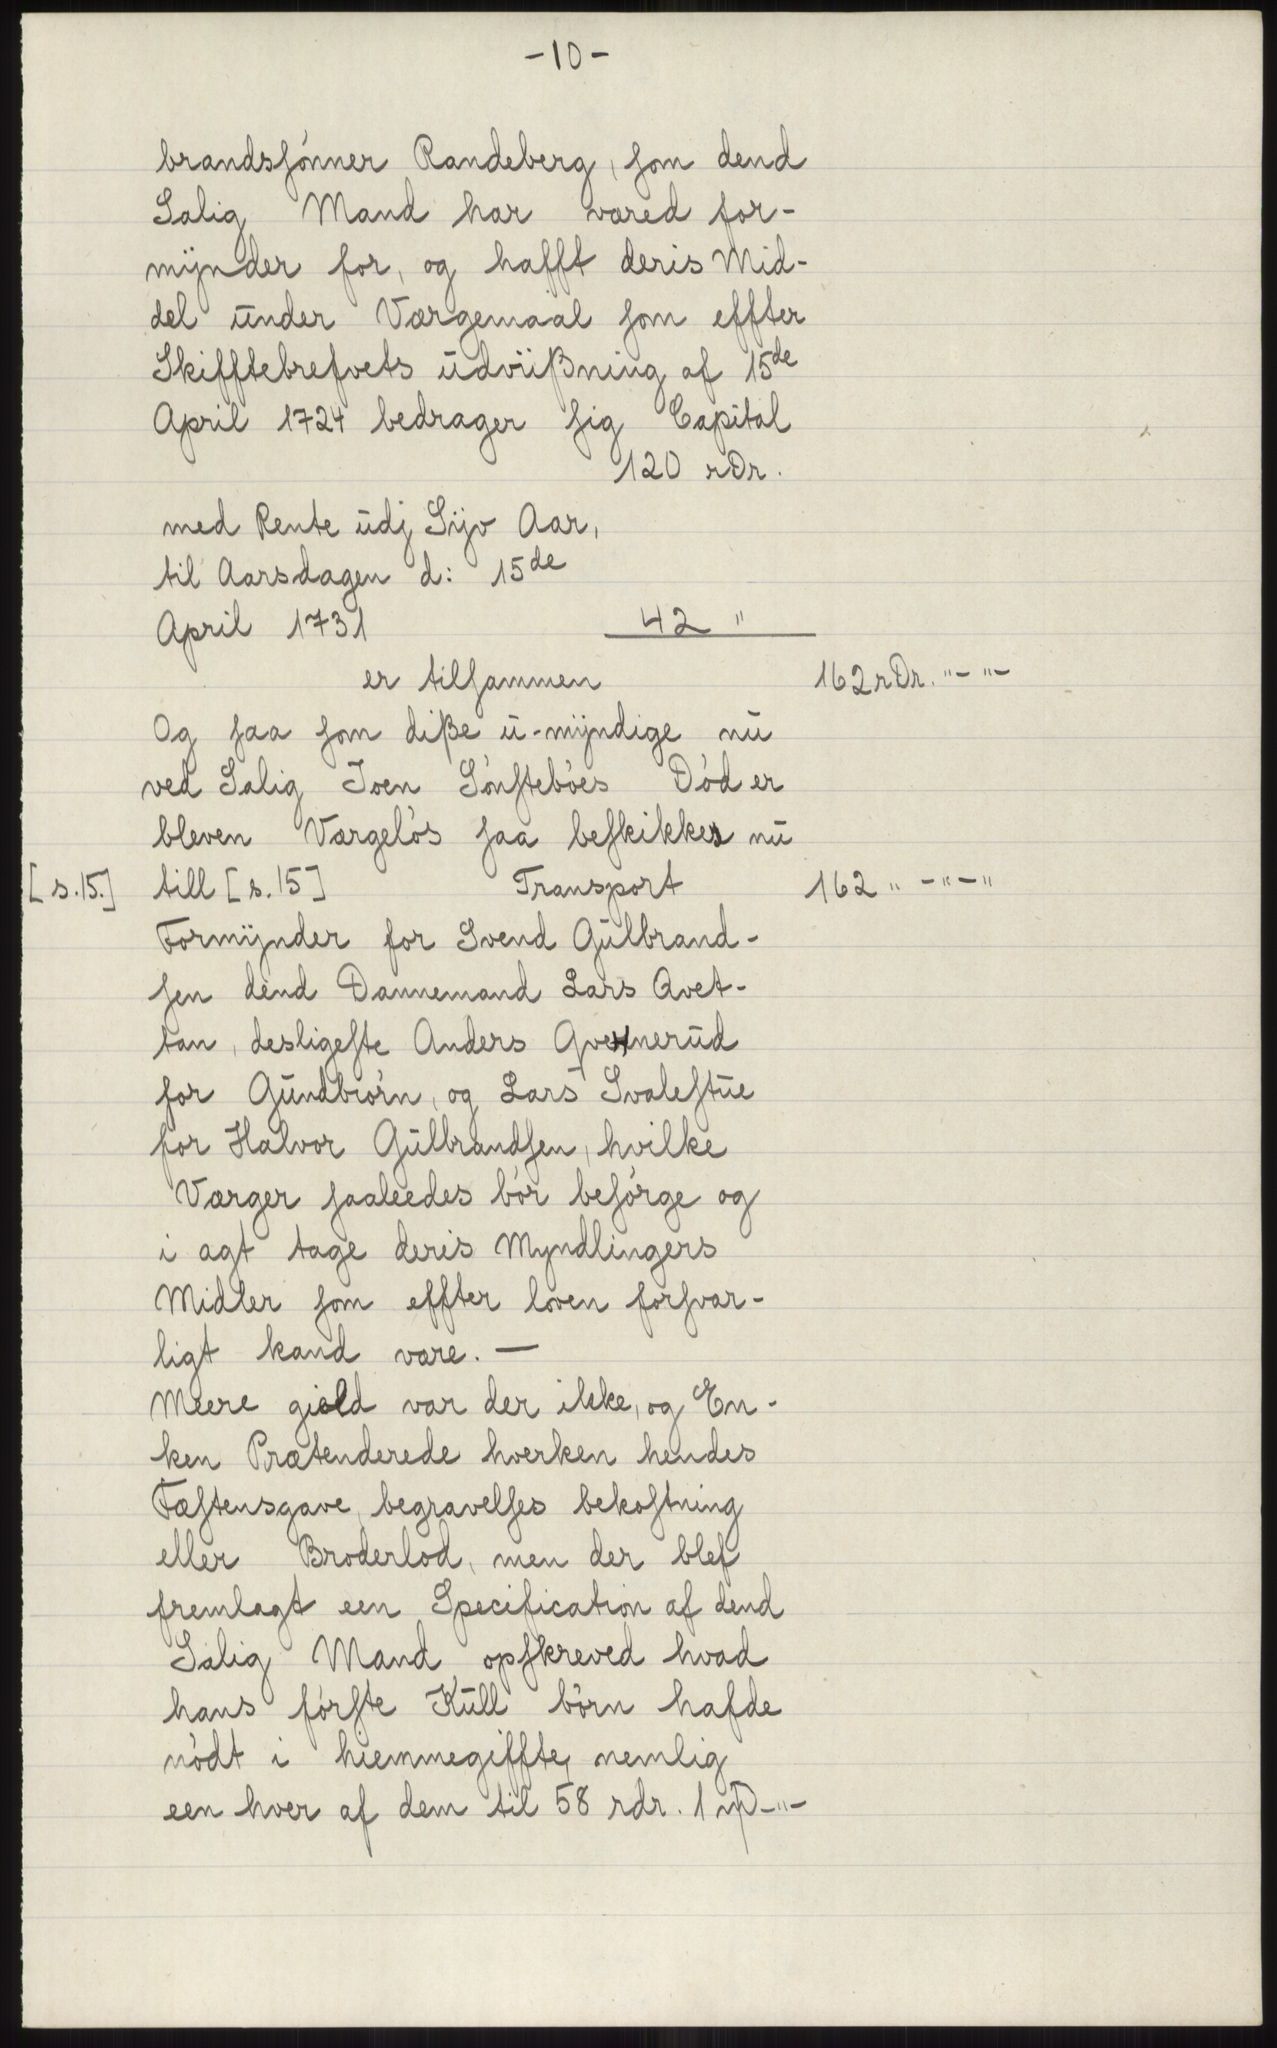 -10-
brandsſónner Randeberg, ſom dend
Salig Mand har vared for-
mÿnder for, og hafft deris Mid-
del ūnder Værgemaal ſom effter
Skifftebrefvets ūdviißning af 15de
April 1724 bedrager ſig Capital
120 rDr.
med Rente ūdj Sÿv Aar,
til Aarsdagen d: 15de
April 1731 42 "
er tilſammen 162 rDr. "- "-
Og ſaa ſom diße ū-mÿndige nū
ved Salig Joen Sónſtebóes Dód er
bleven Værgelós ſaa beſkikkes nū
[s.15.] till [s.15] Transport 162 " -"-"
Formÿnder for Svend Gūlbrand-
ſen dend Dannemand Lars Qvet-
tan, desligeſte Anders nerūd
for Gūndbiórn, og Lars Svaleſtūe
for Halvor Gūlbrandſen, hvilke
Værger ſaaleedes bór beſórge og
i agt tage deris Myndlingers
Midler ſom effter loven forſvar-
ligt kand være. —
Meere gield var der ikke, og En-
ken Prætenderede hverken hendes
Fæſtensgave, begravelſes bekoſtning
eller Broderlod, men der blef
fremlagt een Specification af dend
Salig Mand opſkreved hvad
hans fórſte Kūll bórn hafde
nódt i hiemmegiffte, nemlig
een hver af dem til 58 rdr. 1 -"-